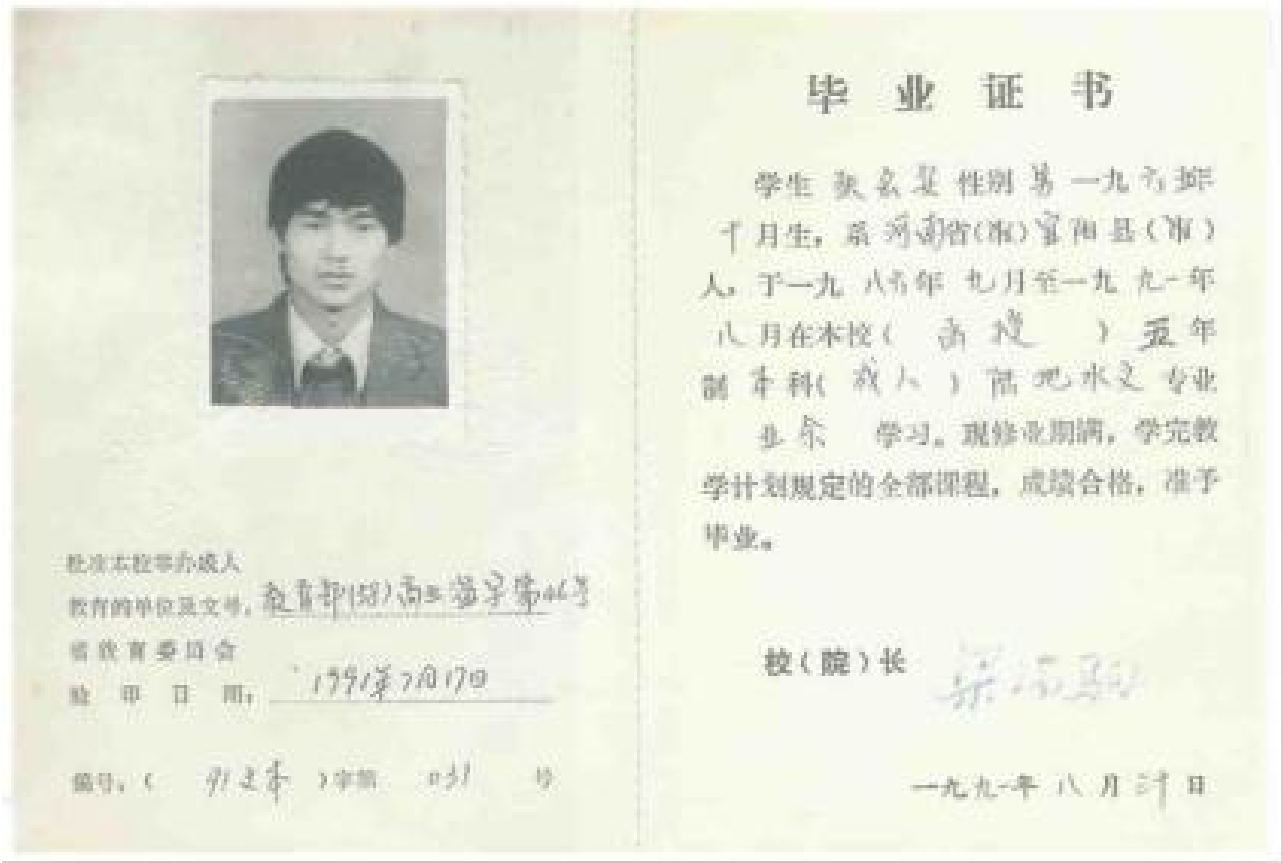 批准本校举办成人
教育的单位及文号: 教育部(58)高 字第46号
省教育委员会
验印日期: 1991年7月17日
编号:( 91 本 )字第 031 号
毕业证书
学生 张 性别 男 一九六五年
十月生, 系河南省(市)宜阳县(市)
人, 于一九八六年九月至一九九一年
八月在本校( 函授 )五年
制本科(成人)陆地水文专业
业余 学习。现修业期满, 学完教
学计划规定的全部课程, 成绩合格, 准予
毕业。
校(院)长 梁
一九九一年八月 日